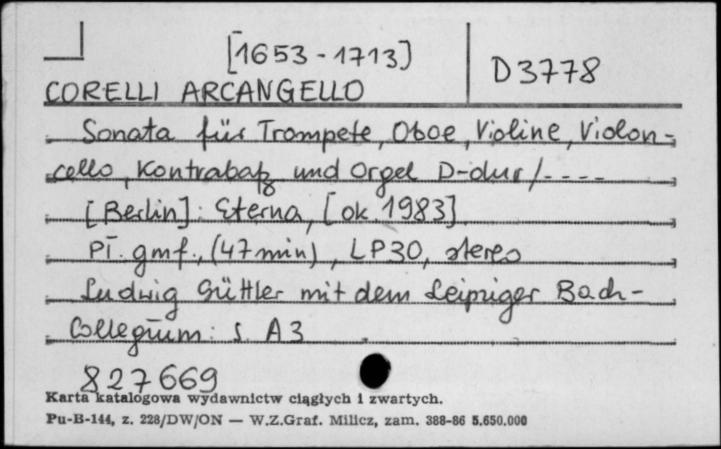 [1653-1713]
D 3778
CORELLI ARCANGELLO
Sonata für Trompete, Oboe, Violine, Violon-
cello, Kontrabaß und Orgel D-dur /----
[Berlin]: Eterna, [ok. 1983]
Pł. gmf., (47 min), LP30, stereo
Ludwig Güttler mit dem Leipziger Bach-
Collegium: s. A3
827669
Karta katalogowa wydawnictw ciągłych i zwartych.
Pu-B-144, z. 228/DW/ON — W.Z.Graf. Milicz, zam. 388-86 5.650.000